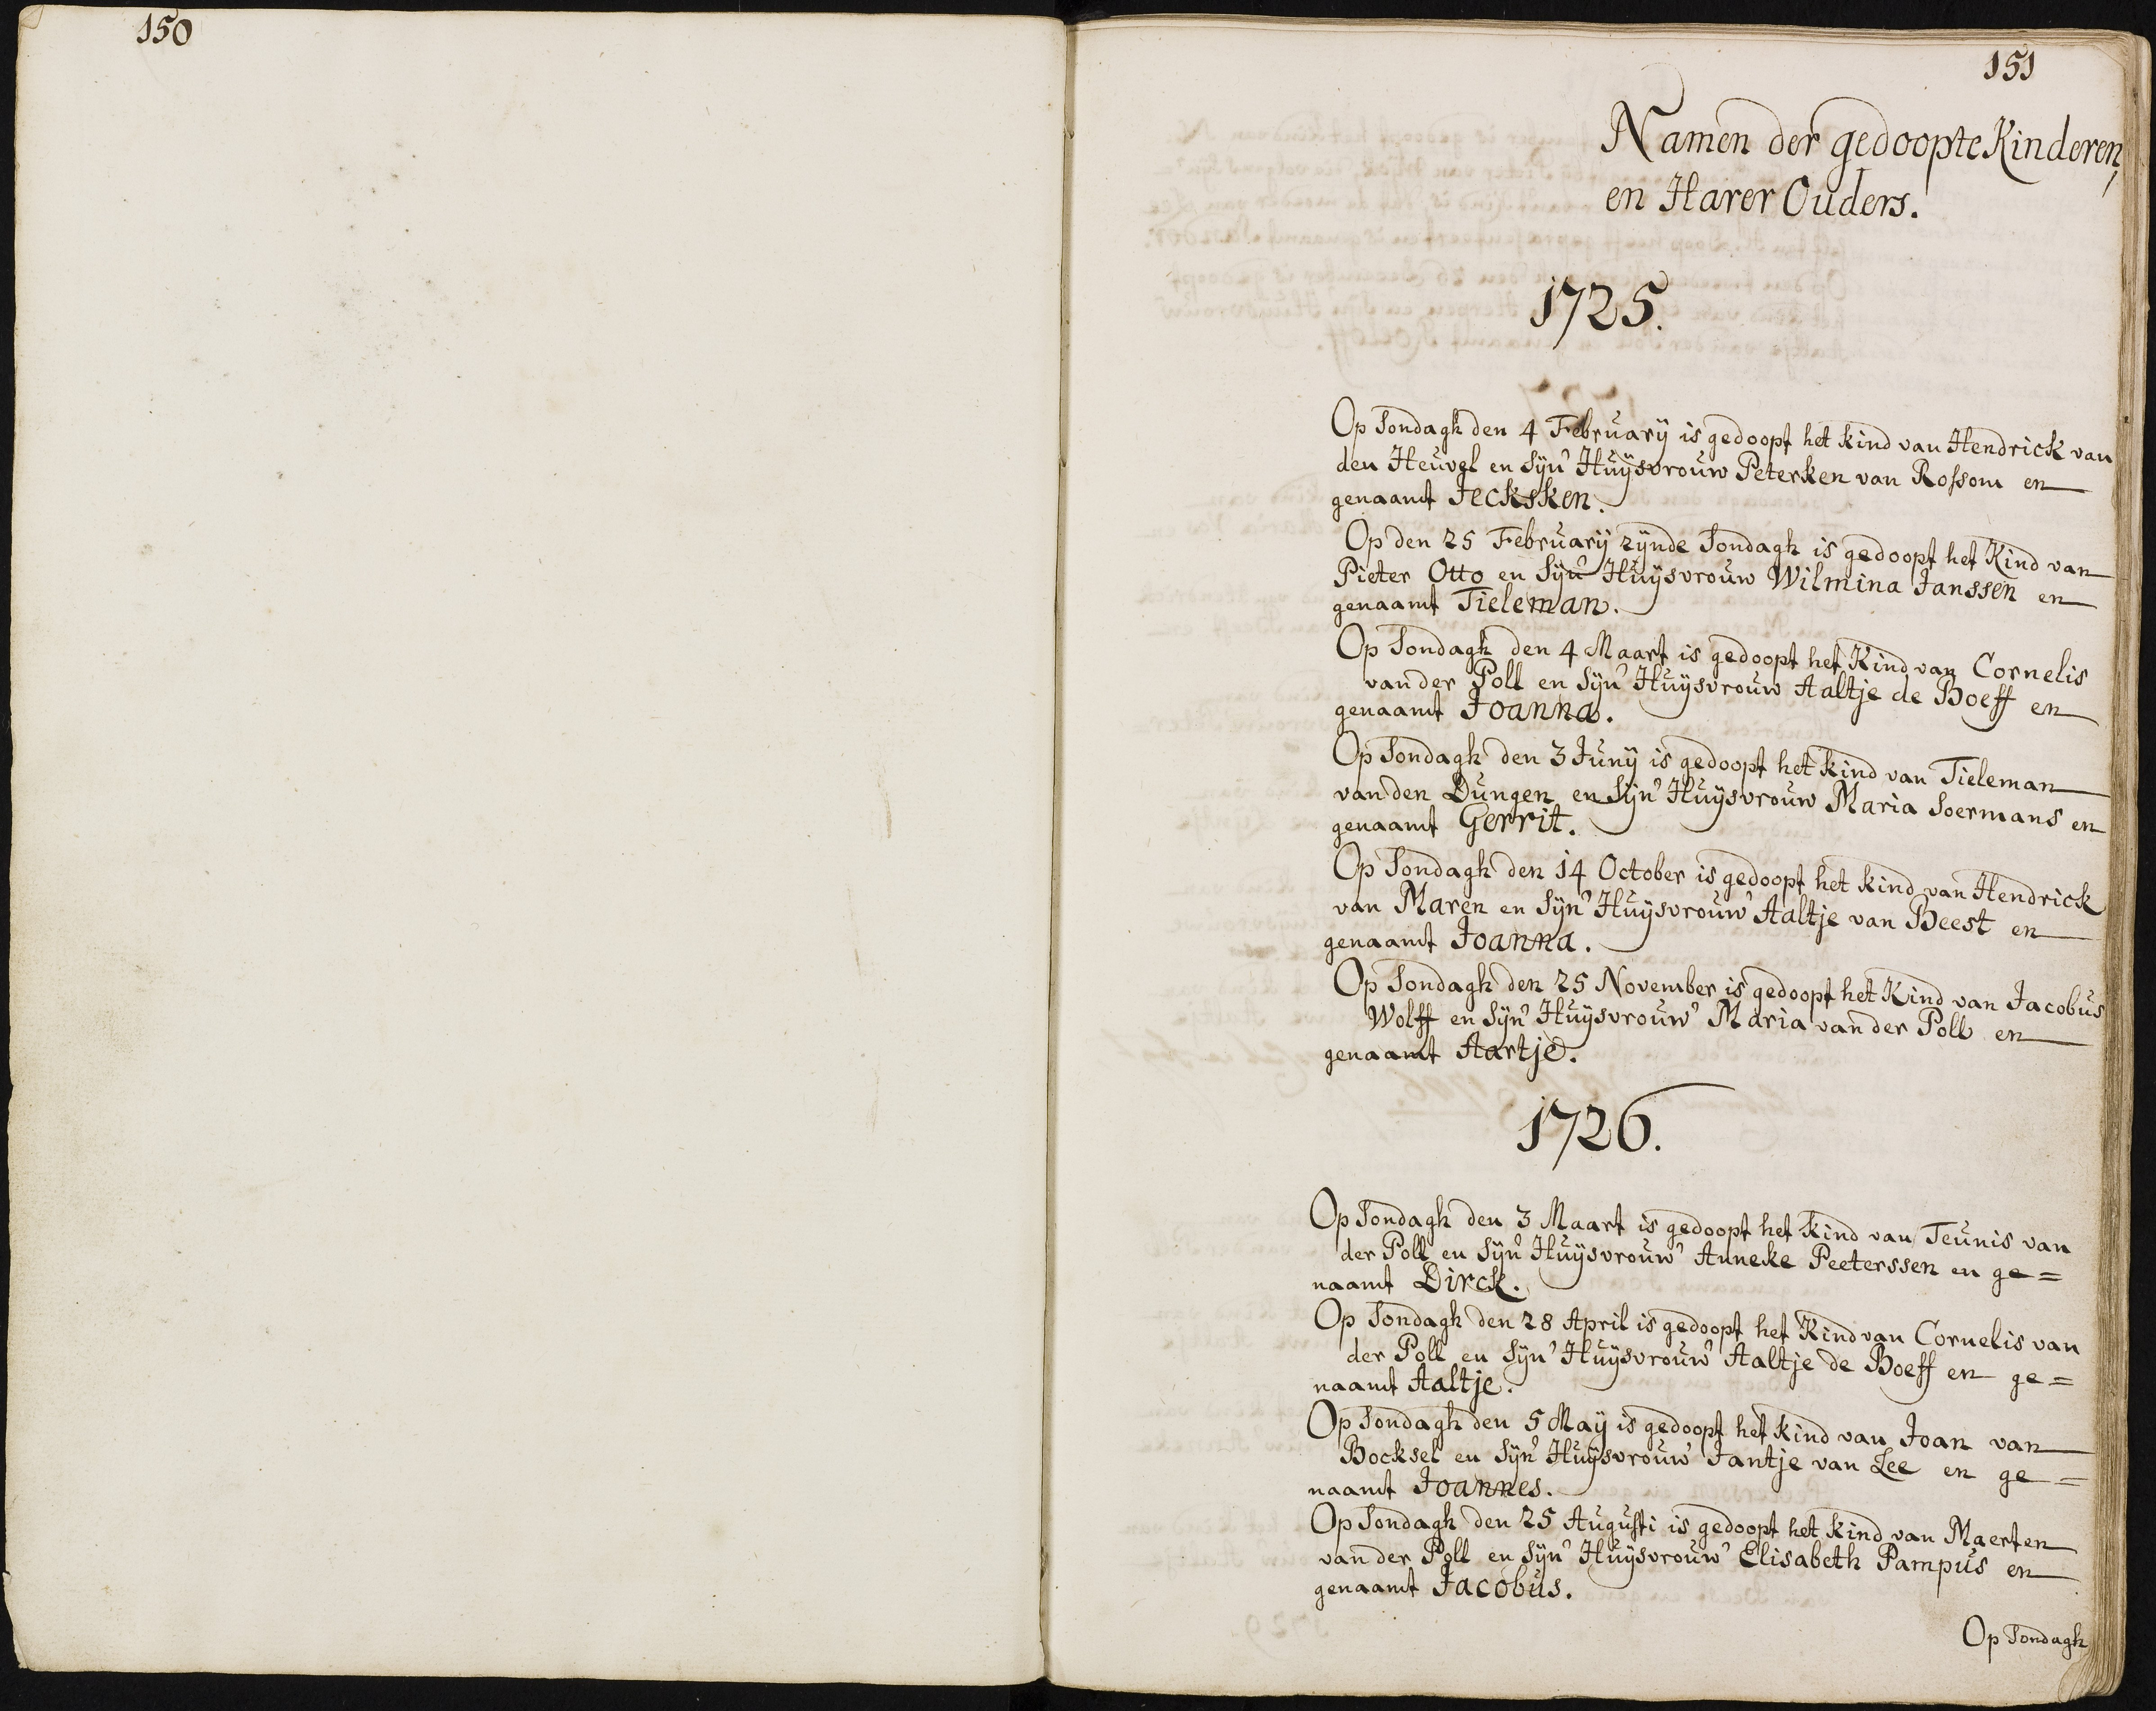 150
151
Namen der gedoopte Kinderen,
en Harer Ouders.
1725.
Op Sondagh den 4 February is gedoopt het kind van Hendrick van
den Heuvel en Syn Huysvrouw Peterken van Rossom en
genaamt Jecksken.
Op den 25 February zynde Sondagh is gedoopt het Kind van
Pieter Otto en Syn Huysvrouw Wilmina Janssen en
genaamt Tieleman.
Op Sondagh den 4 Maart is gedoopt het Kind van Cornelis
van der Poll en Syn Huysvrouw Aaltje de Boeff en
genaamt Joanna.
Op Sondagh den 3 Juny is gedoopt het kind van Tieleman
van den Dungen en Syn Huysvrouw Maria Soermans en
genaamt Gerrit.
Op Sondagh den 14 October is gedoopt het kind van Hendrick
van Maren en Syn Huysvrouw Aaltje van Beest en
genaamt Joanna.
Op Sondagh den 25 November is gedoopt het Kind van Jacobus
Wolff en Syn Huysvrouw Maria van der Poll en
genaamt Aartje.
1726.
Op Sondagh den 3 Maart is gedoopt het kind van Teunis van
der Poll en Syn Huysvrouw Anneke Peeterssen en ge=
naamt Dirck.
Op Sondagh den 28 April is gedoopt het Kind van Cornelis van
der Poll en Syn Huysvrouw Aaltje de Boeff en ge=
naamt Aaltje.
Op Sondagh den 5 May is gedoopt het kind van Joan van
Bocksel en Syn Huysvrouw Jantje van Lee en ge=
naamt Joannes.
Op Sondagh den 25 Augusti is gedoopt het kind van Maerten
van der Poll en Syn Huysvrouw Elisabeth Pampus en
genaamt Jacobus.
Op Sondagh